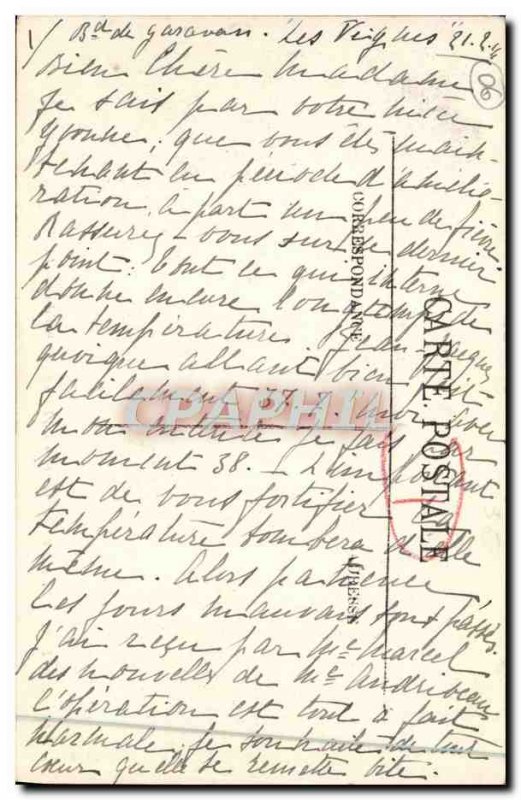 1/ Bd de Garavan. "Les Vignes" 21.2.
06
Bien Chère Madame
Je sais par votre nièce
Yvonne, que vous êtes main-
tenant en période d'amélio-
ration, à part un peu de fièvre.
Rassurez-vous sur ce dernier
point: tout ce qui interne
donne encore longtemps de
la température. Jean-Jacques
quoique allant bien fait
facilement 37. moi avec
mon rhume je fais par
moment 38. - L'important
est de vous fortifier la
température tombera d'elle
même. Alors patience
les jours mauvais sont passés.
J'ai reçu par Me Marcel
des nouvelles de Me Andribeau
l'opération est tout à fait
normale, je souhaite de tout
coeur qu'elle se remette vite.
CORRESPONDANCE
CARTE POSTALE
ADRESSE
CPAPHIL